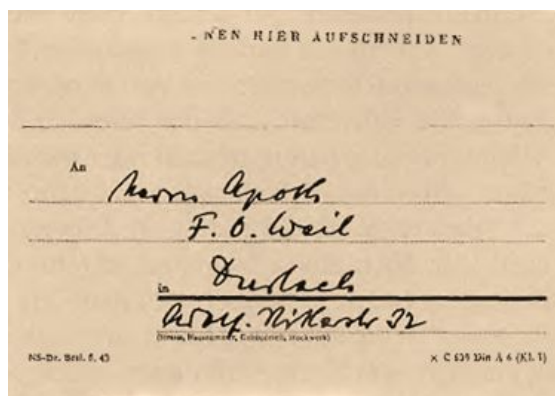 NEN HIER AUFSCHNEIDEN
An
Herrn Apoth
F. O. Weil
in Durlach
Adolf-Hitlerstr 32
(Strasse, Hausnummer, Gebäudeteil, Stockwerk)
NS-Dr. Bresl. 43
× C 639 Din A 6 (Kl. 1)